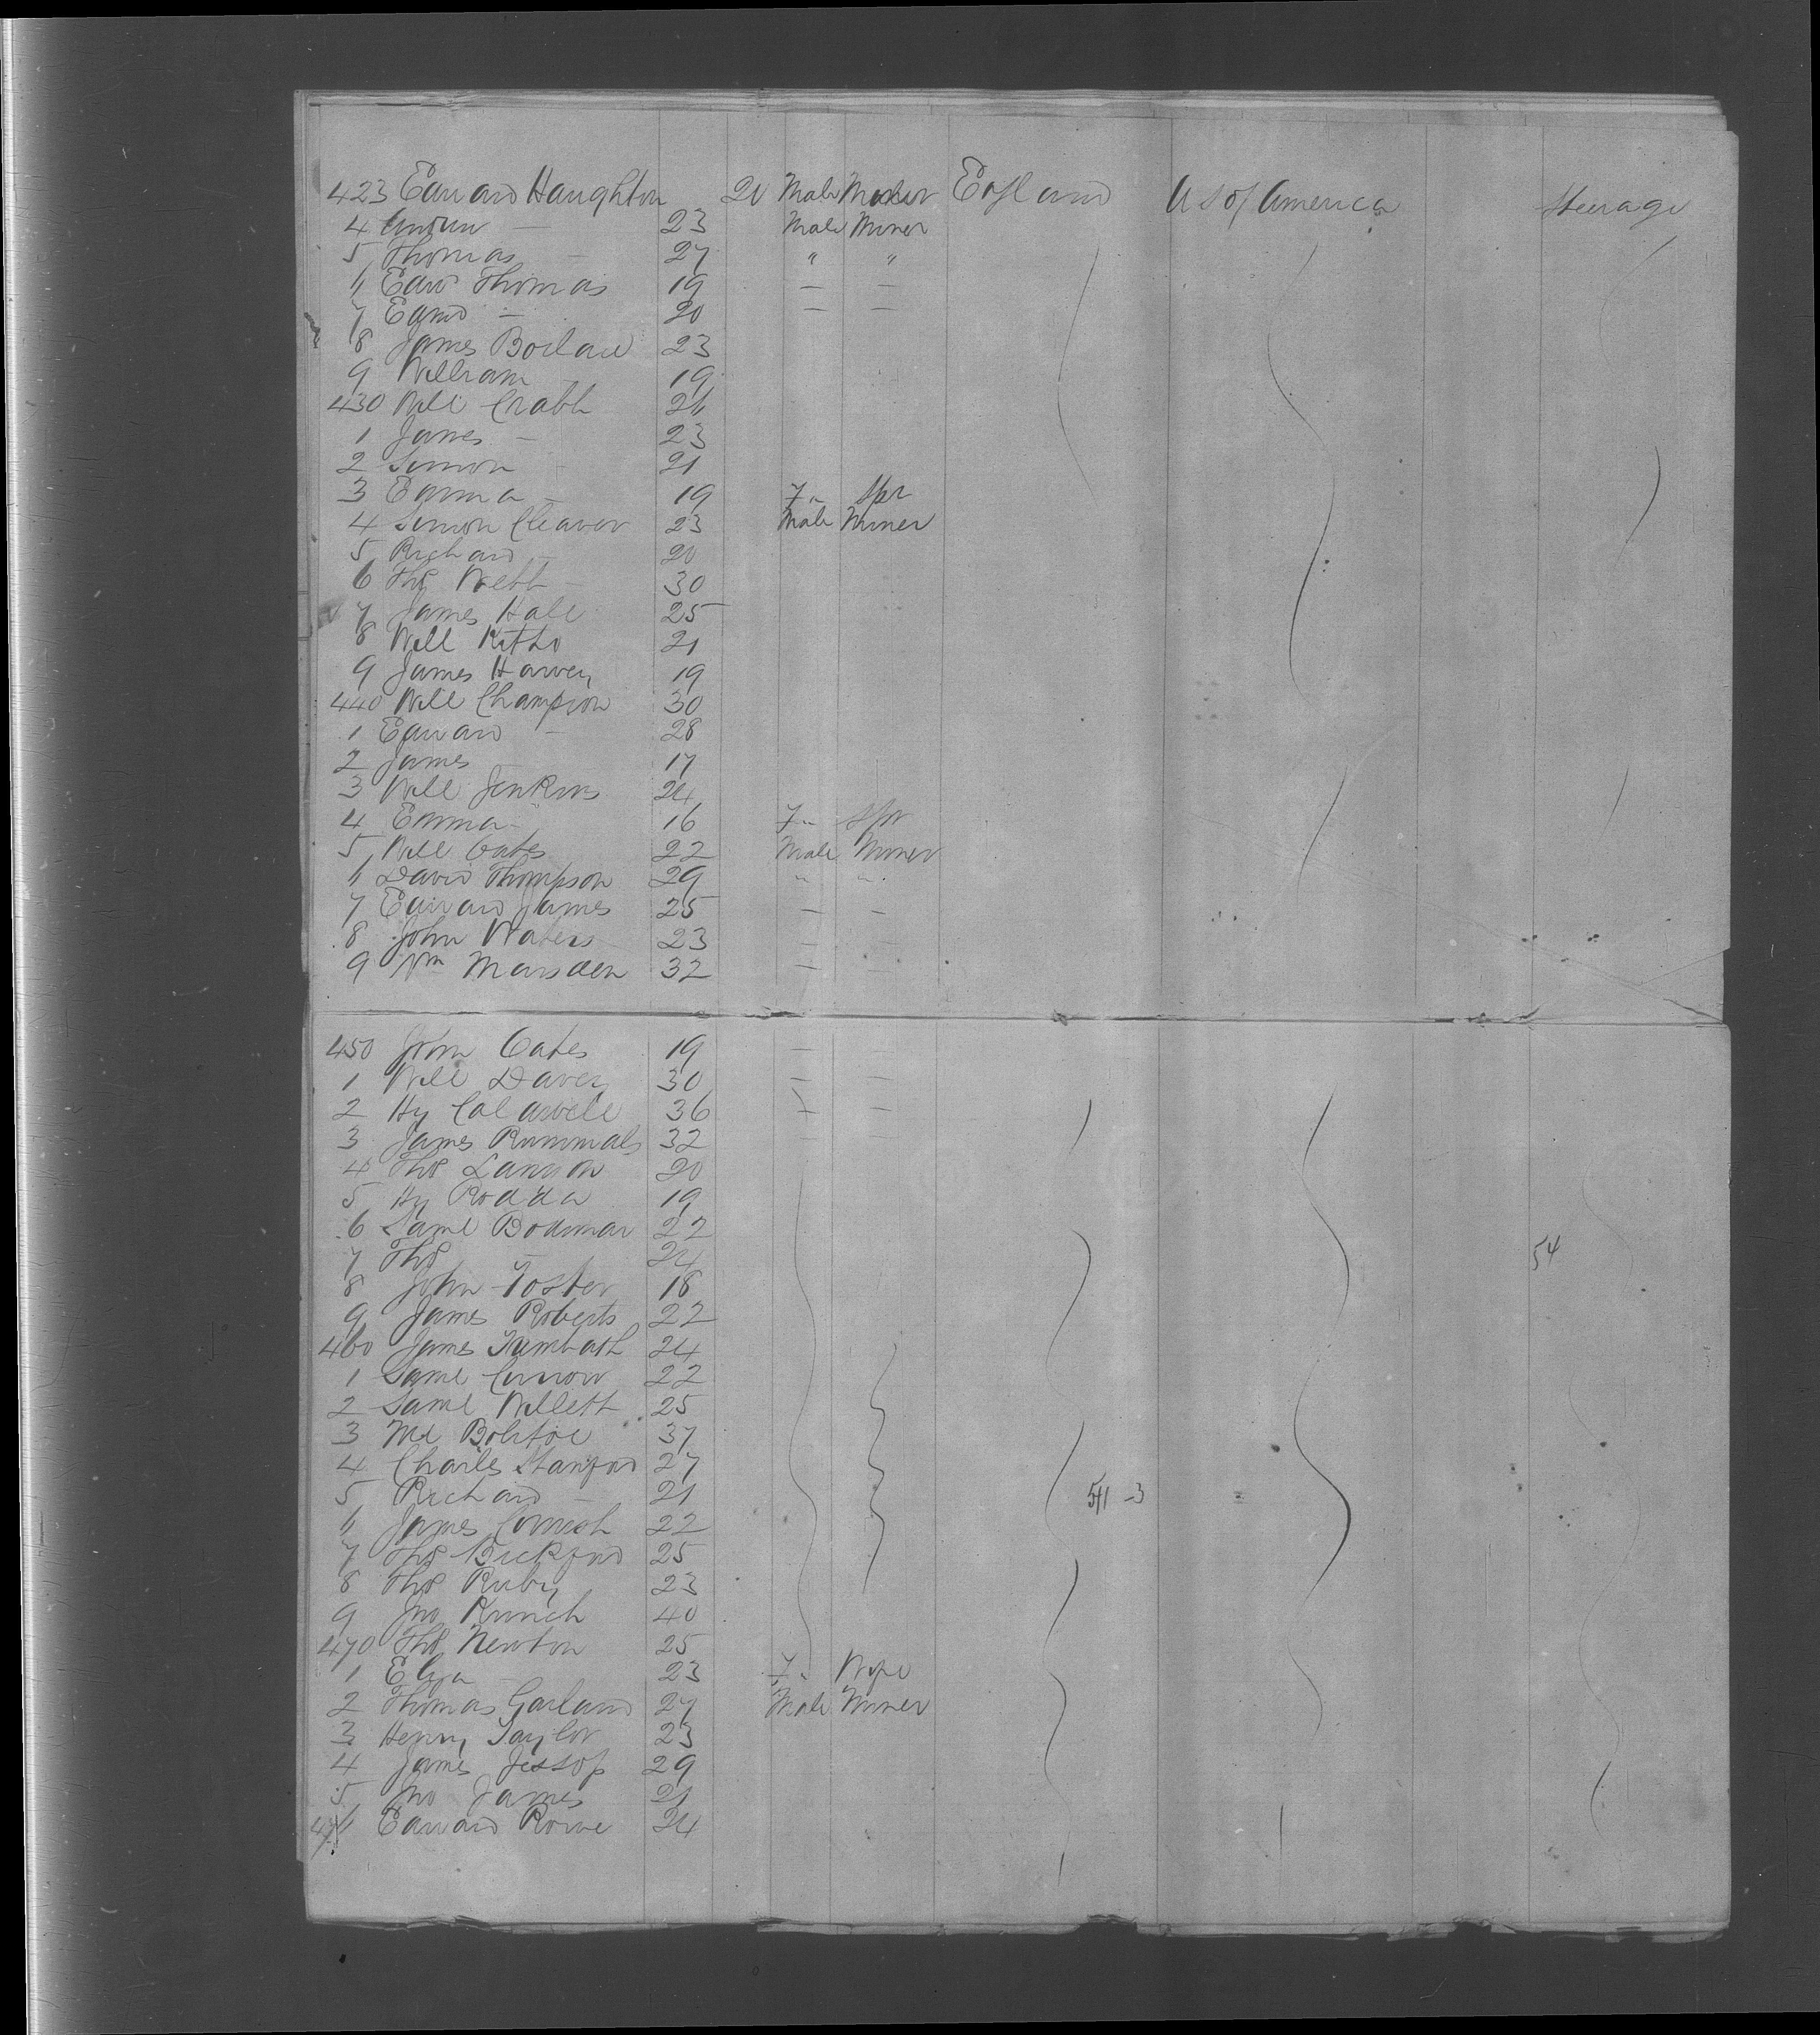 423 Edward Haughton 20 Male England U S of America Steerage
4 Andrew — 23 Male Miner
5 Thomas — 27 " "
6 Edwd Thomas 19 — —
7 Edmd — 20 — —
8 James 23
9 William — 19
430 Will Crabb 26
1 James — 23
2 Simon — 21
3 Emma — 19 F" Spr
4 Simon Cleaver 23 Male Miner
5 Richard — 20
6 Thos Webb — 30
7 James Hall 25
8 Will Kitto 21
9 James Harvey 19
440 Will Champion 30
1 Edward — 28
2 James — 17
3 Will Jenkins 24
4 Emma 16 F" Spr
5 Will Oates 22 Male Miner
6 David Thompson 29 " "
7 Edward James 25 — —
8 John Waters 23 — —
9 Wm Marsden 32 — —
450 John Oates 19 — —
1 Will Davey 30 — —
2 Hy Caldwell 36 — —
3 James 32 — —
4 Thos Lanyon 20
5 Hy Rodda 19
6 Saml Bodinar 22
7 Thos — 24 54
8 John Foster 18
9 James Roberts 22
460 James Trembath 24
1 Saml Curnow 22
2 Saml Willett 25
3 37
4 Charles Stanford 27
5 Richard — 21 541 - 3
6 James Cornish 22
7 Thos Bickford 25
8 Thos Ruby 23
9 Jno 40
470 Thos Newton 25
1 Eliza 23 F" Wife
2 Thomas Garland 27 Male Miner
3 Henry Taylor 23
4 James Jessop 29
5 Jno James 21
476 Edward Rowe 24